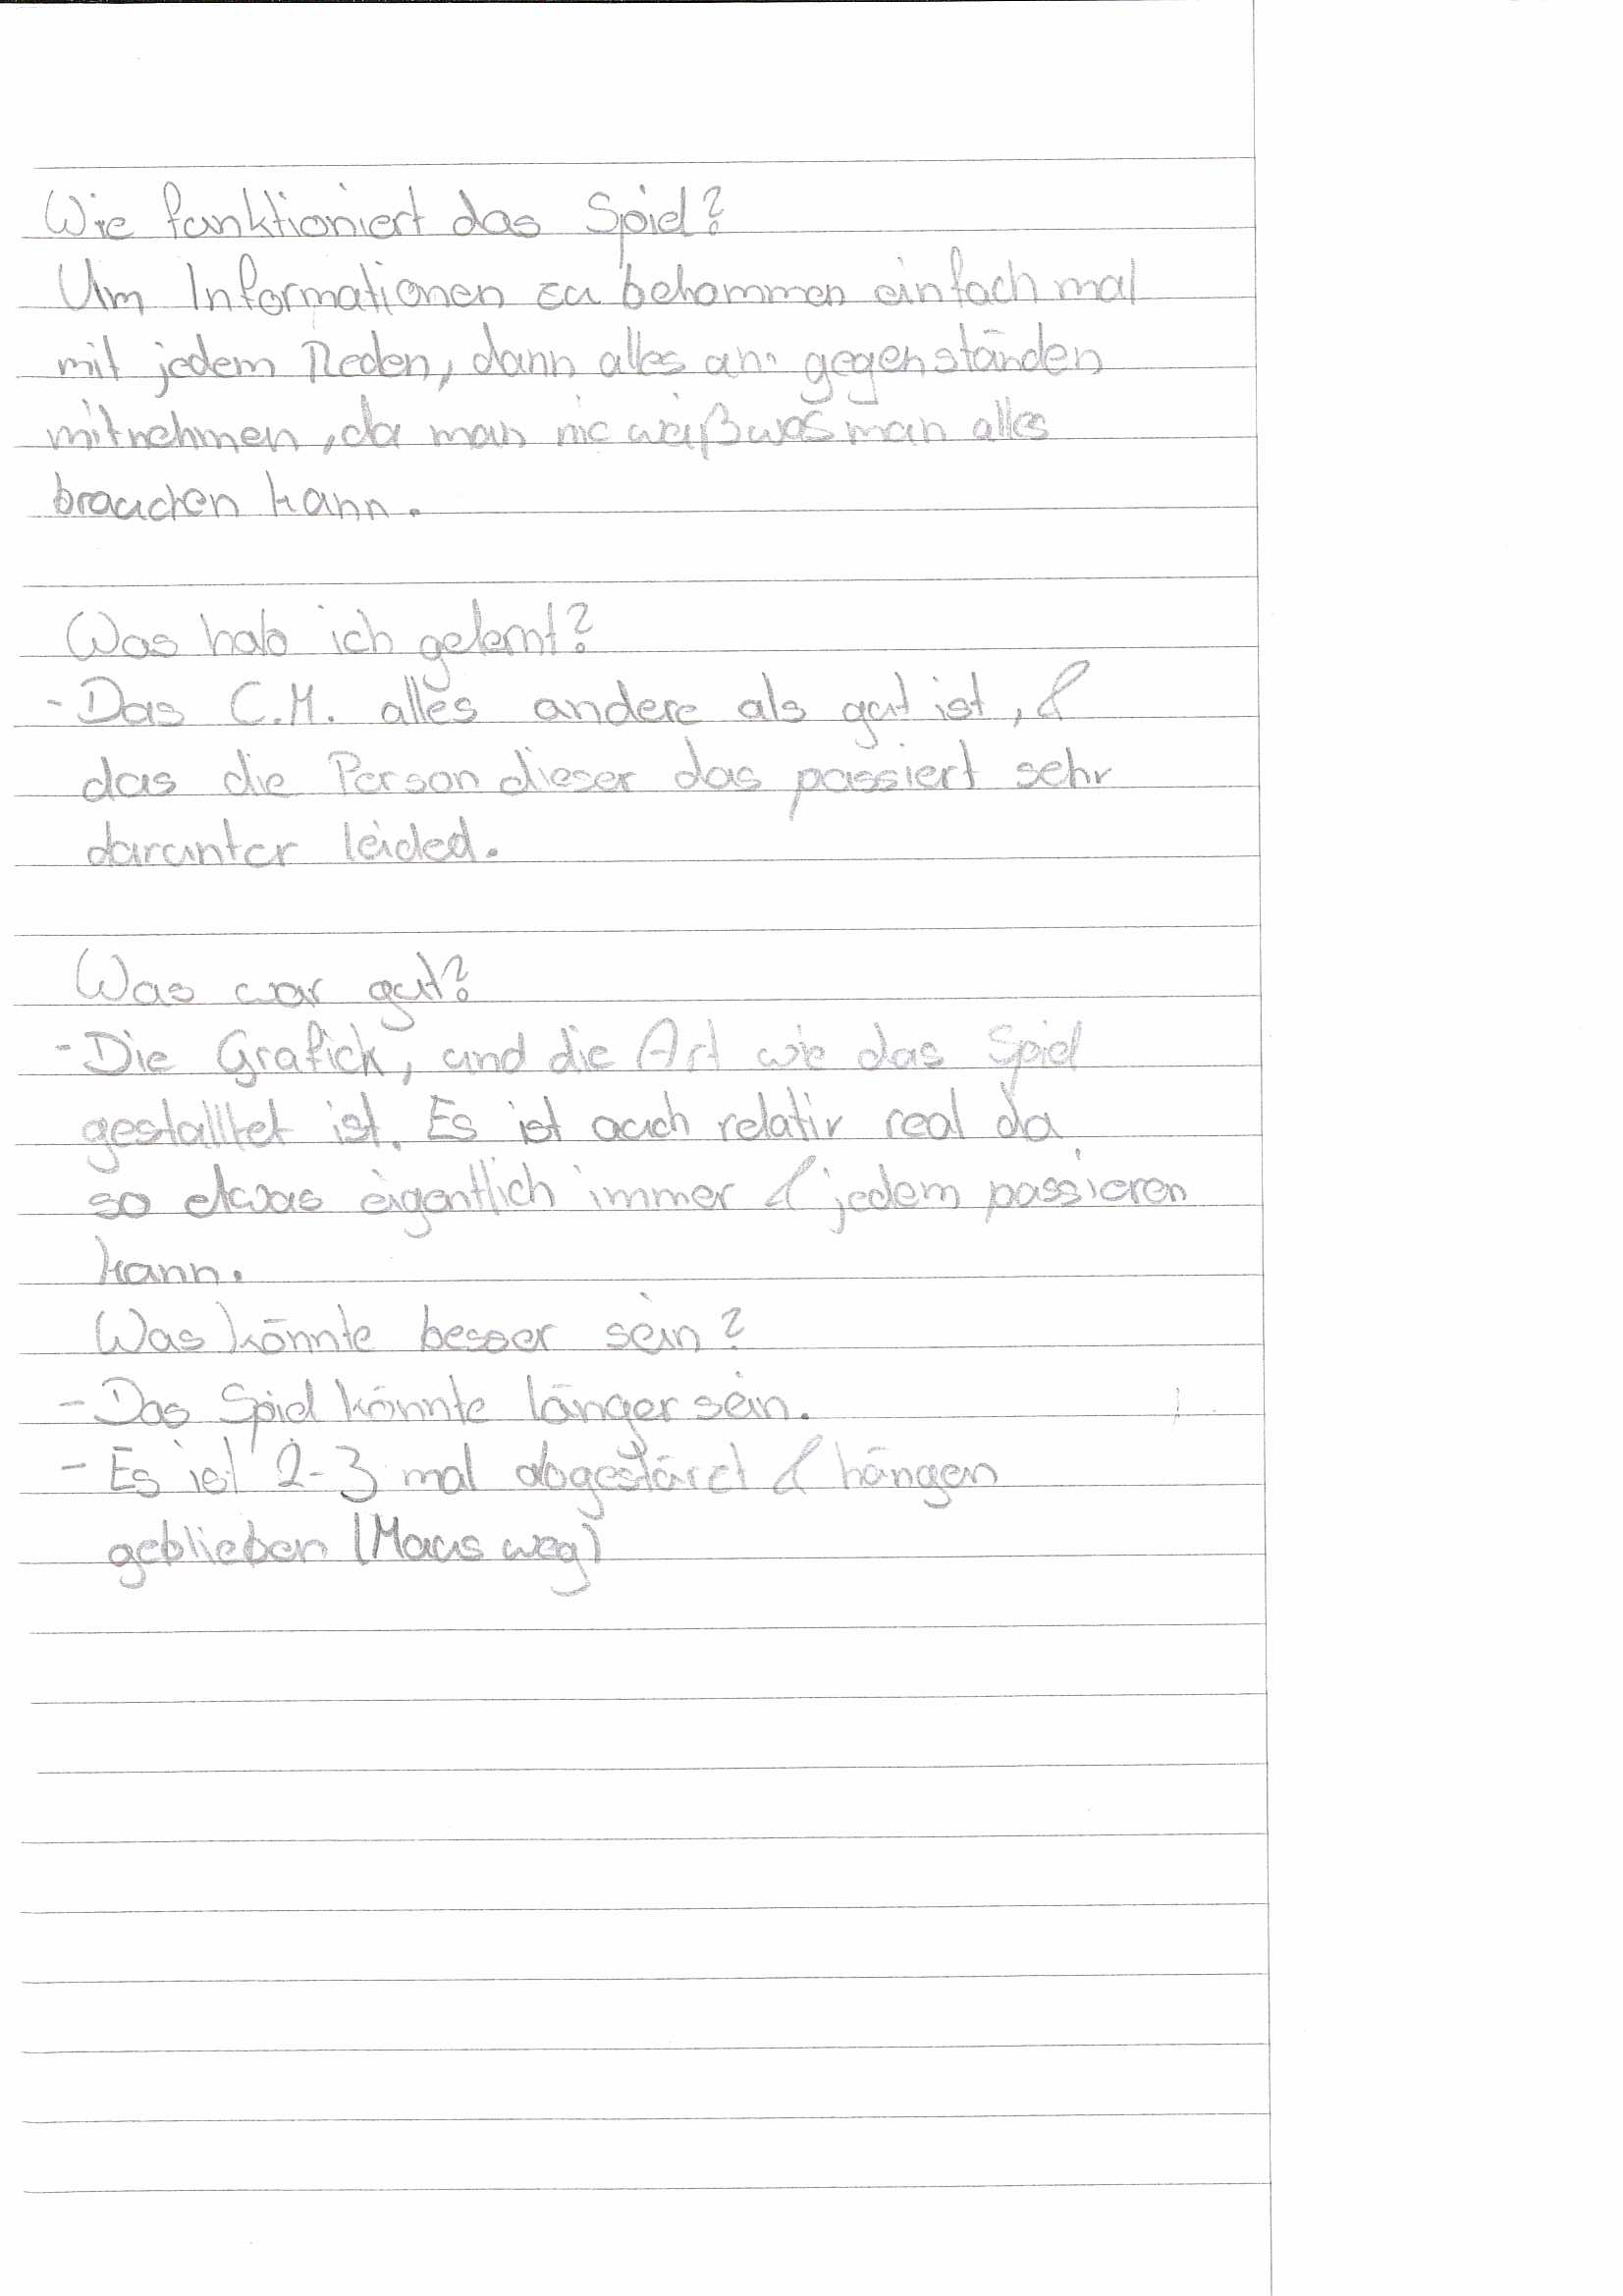 Wie funktioniert das Spiel?
Um Informationen zu bekommen einfach mal
mit jedem Reden, dann alles an gegenständen
mitnehmen, da man nie weiß was man alles
brauchen kann.
Was hab ich gelernt?
- Das C.M. alles andere als gut ist, &
das die Person dieser das passiert sehr
darunter leided.
Was war gut?
- Die Grafick, und die Art wie das Spiel
gestalltet ist. Es ist auch relativ real da,
so etwas eigentlich immer & jedem passieren
kann.
Was könnte besser sein?
- Das Spiel könnte länger sein.
- Es ist 2-3 mal abgestürzt & hängen
geblieben (Maus weg)